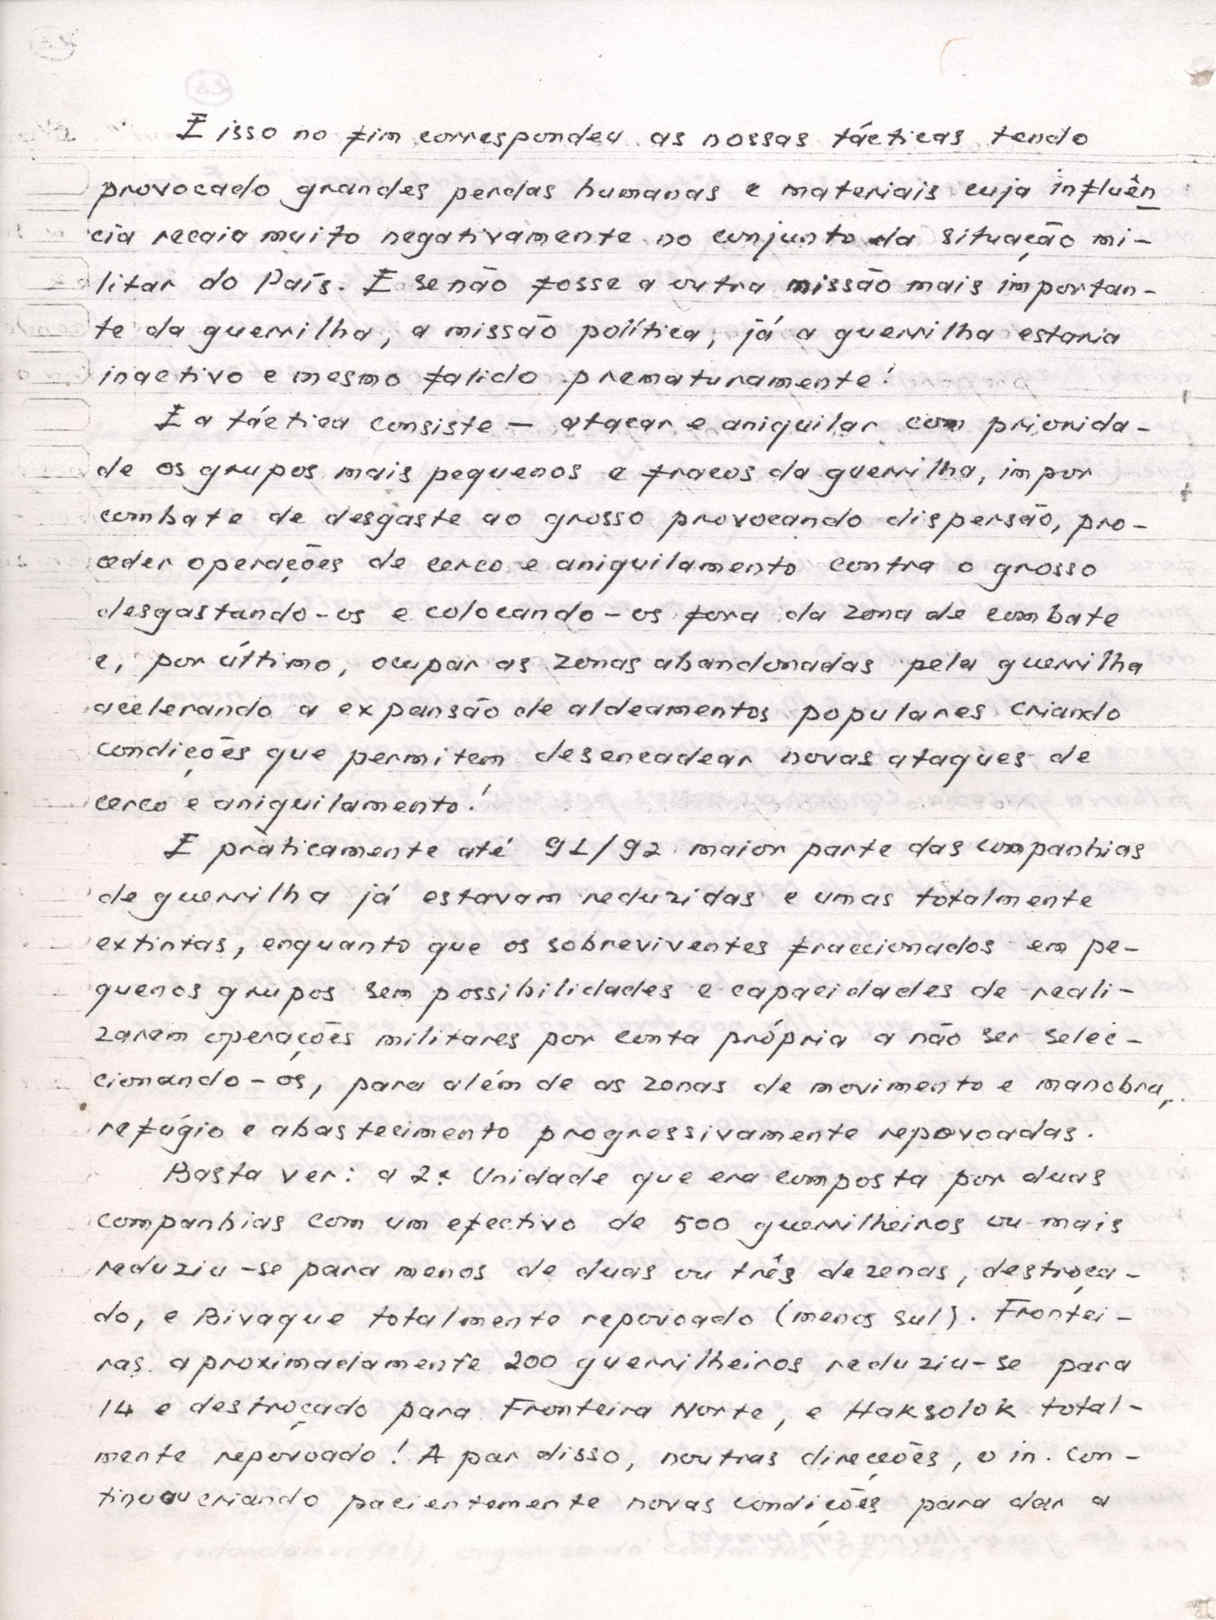 E isso no fim correspondeu as nossas tácticas tendo
provocado grandes perdas humanas e materiais cuja influên
cia recaia muito negativamente no conjunto da situação mi-
litar do País. E se não fosse a outra missão mais importan-
te da guerrilha, a missão política, já a guerrilha estaria
inactivo e mesmo falido prematuramente!
E a táctica consiste — atacar e aniquilar com priorida-
de os grupos mais pequenos e fracos da guerrilha, impor
combate de desgaste ao grosso provocando dispersão, pro-
ceder operações de cerco e aniquilamento contra o grosso
desgastando-os e colocando-os fora da zona de combate
e, por último, ocupar as zonas abandonadas pela guerrilha
acelerando a expansão de aldeamentos populares criando
condições que permitem desencadear novas ataques de
cerco e aniquilamento!
E pràticamente até 91/92 maior parte das companhias
de guerrilha já estavam reduzidas e umas totalmente
extintas, enquanto que os sobreviventes fraccionados em pe-
quenos grupos sem possibilidades e capacidades de reali-
zarem operações militares por conta própria a não ser selec-
cionando-os, para além de as zonas de movimento e manobra,
refúgio e abastecimento progressivamente repovoadas.
Basta ver: a 2ª Unidade que era composta por duas
companhias com um efectivo de 500 guerrilheiros ou mais
reduziu-se para menos de duas ou três dezenas, destroça-
do, e Bivaque totalmente repovoado (menos sul). Frontei-
ras aproximadamente 200 guerrilheiros reduziu-se para
14 e destroçado para Fronteira Norte, e Haksolok total-
mente repovoado! A par disso, noutras direcções, o in. con-
tinuou criando pacientemente novas condições para dar a